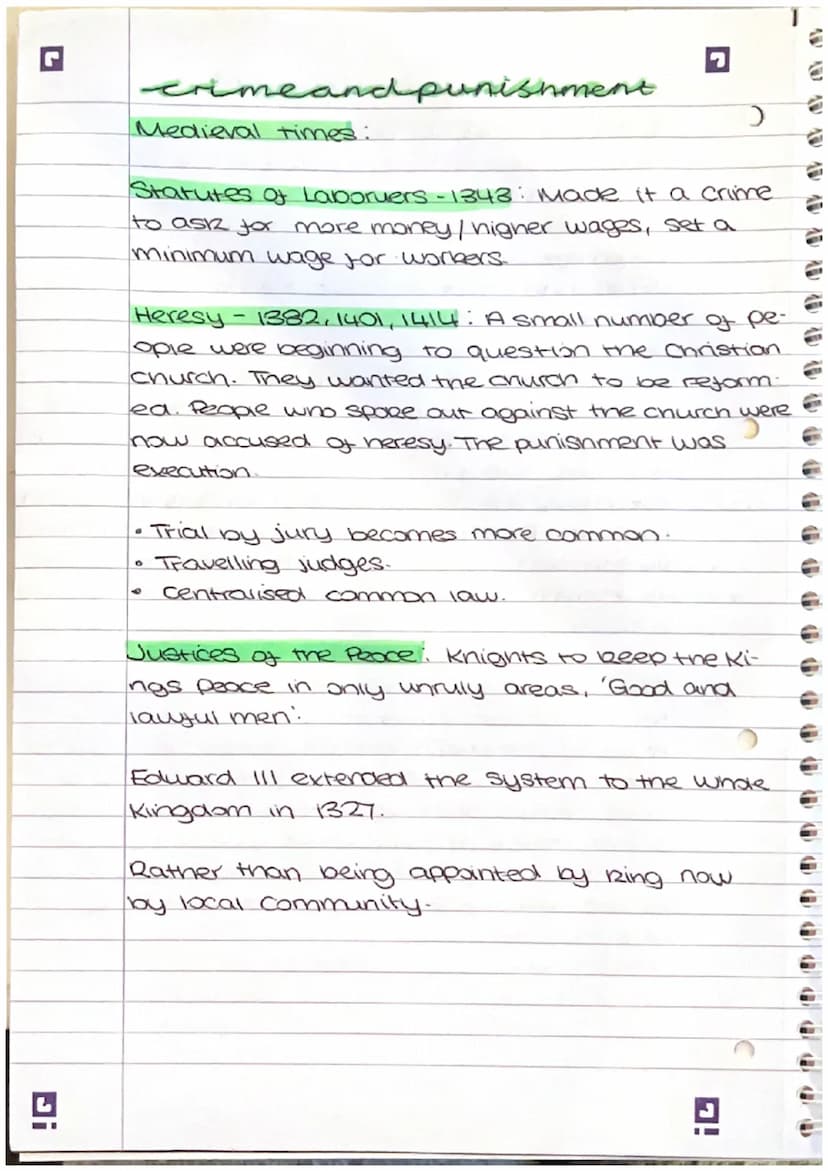 crimeandpunishment
Medieval times:
Statutes of Labourers - 1343: Made it a crime
to ask for more money / higher wages, set a
minimum wage for workers.
Heresy - 1382, 1401, 1414: A small number of pe-
ople were beginning to question the Christian
church. They wanted the church to be reform-
ed. People who spoke out against the church were
now accused of heresy. The punishment was
execution.
• Trial by jury becomes more common.
• Travelling judges.
• Centralised common law.
Justices of the Peace: Knights to keep the Ki-
ngs peace in only unruly areas, 'Good and
lawful men'.
Edward III extended the system to the whole
Kingdom in 1327.
Rather than being appointed by king now
by local community.